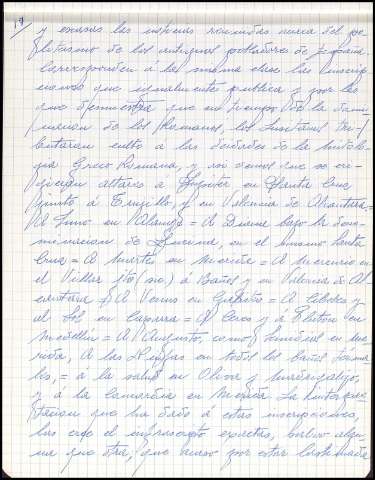 19/
y escasas las noticias reunidas acerca del po-
liteismo de los antiguos pobladores de España.
Corresponden á la misma clase las inscrip-
ciones que igualmente publica y por las
que demuestra que en tiempos de la domi-
nacion de los Romanos, los Lusitanos tri-
butaron culto á las deidades de la mitolo-
gia Greco Romana, y asi vemos que se eri-
gieron altares a Jupiter en Santa Cruz
junto á Trugillo, y en Valencia de Alcantara =
A Juno en = A Diana bajo la deno-
minacion de Lucina, en el mismo Santa
Cruz = A Marte en Merida = A Mercurio en
el Villar jto (no,) á Baños y en Valencia de Al-
cantara = A Venus en = A Cibeles y
el Sol en Caparra = A Ceres y á Pluton en
Medellin = A Augusto, como Tumoral en Me-
rida, A las Ninfas en todos los baños Terma-
les, = á la salud en Oliva y
y á la en Merida La interpre-
tacion que ha dado á estas inscripciones,
las cree el infrascripto exactas, salvo algu-
na que otra, que acaso por estar lastimada